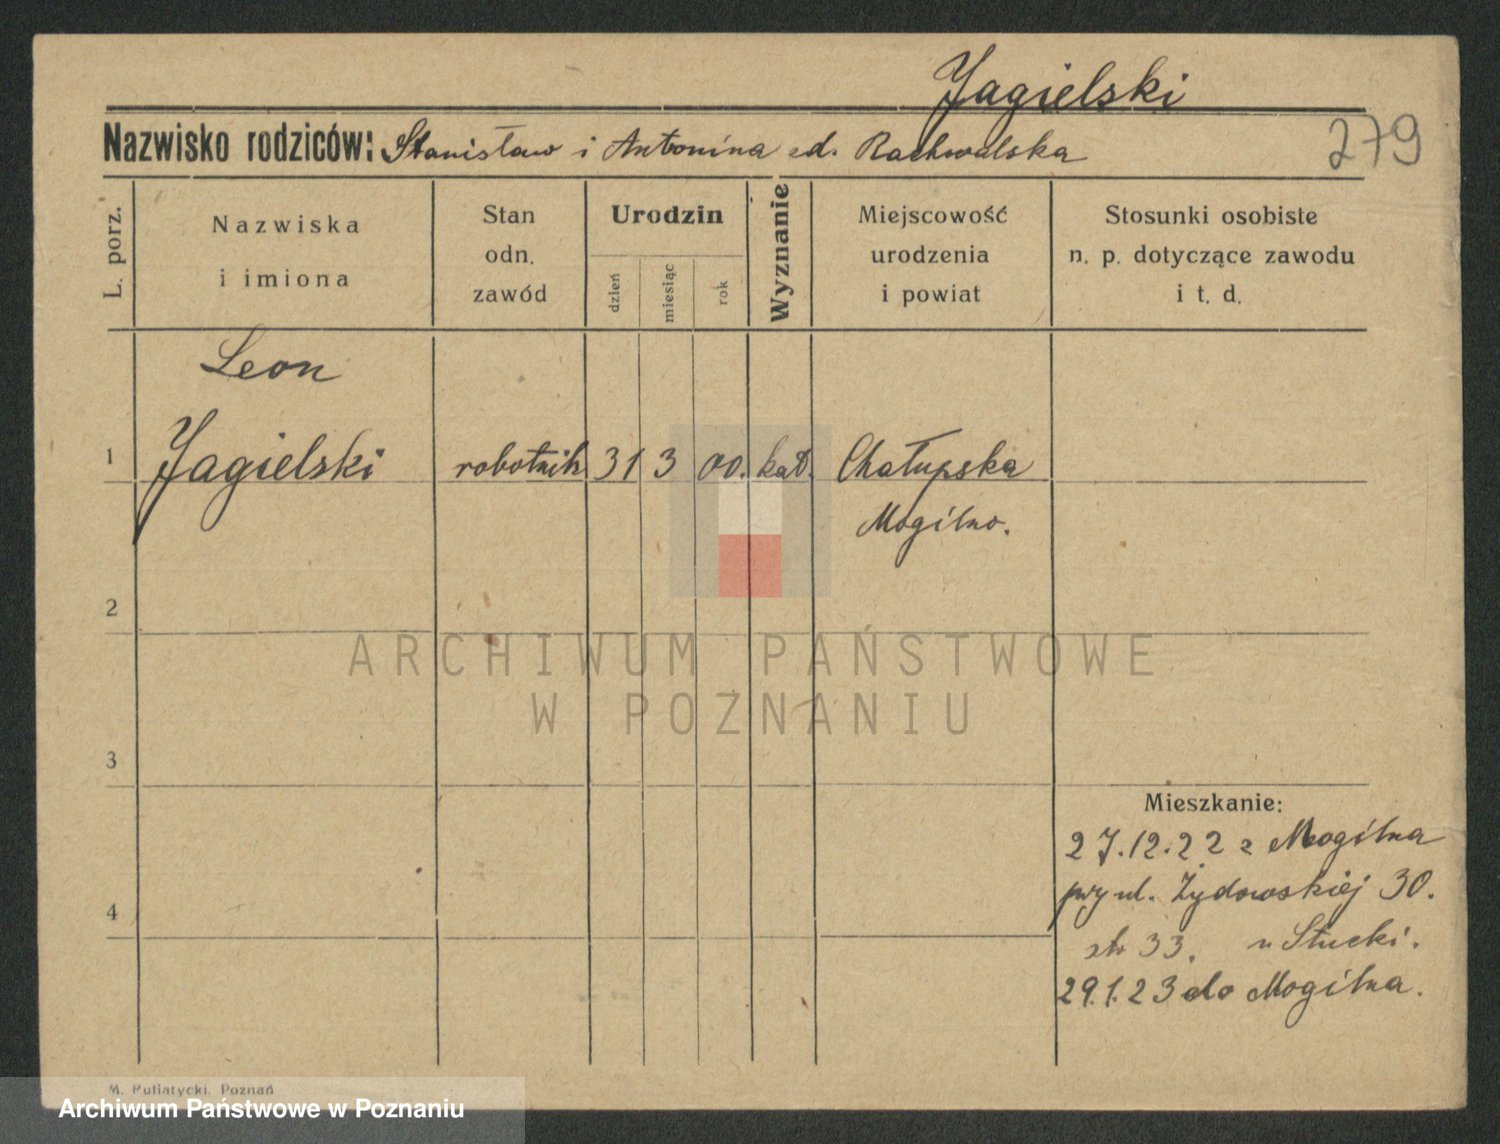 Jagielski
279
Nazwisko rodziców: Stanisław i Antonina zd. Rachwalska
L. porz.
Nazwiska
i imiona
Stan
odn.
zawód
Urodzin
dzień
miesiąc
rok
Wyznanie
Miejscowość
urodzenia
i powiat
Stosunki osobiste
n. p. dotyczące zawodu
i t. d.
Leon
1 Jagielski robotnik 31 3 00. kat. Chałupska
Mogilno.
2
ARCHIWUM PAŃSTWOWE
W POZNANIU
3
Mieszkanie:
27.12.22 z Mogilna
przy ul. Żydowskiej 30.
4
33. u Stucki.
29.1.23 do Mogilna.
M. Putiatycki, Poznań
Archiwum Państwowe w Poznaniu